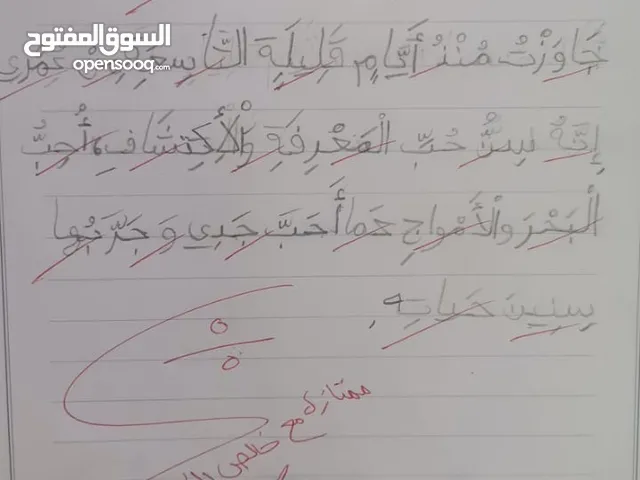 السوق المفتوح
opensooq.com
جَاوَزْتُ مُنْذُ أَيَّامٍ قَلِيلَةٍ التَّاسِعَةَ مِنْ عُمْرِي
إِنَّهُ سِنُّ حُبِّ الْمَعْرِفَةِ وَالْأِكْتِشَافِ، أُحِبُّ
الْبَحْرَ وَالْأَمْوَاجِ كَمَا أَحَبَّ جَدِي وَ جَرَّبَهَا
سِنِينَ حَيَاتِهِ.
٥
٥
ممتازة
مع خالص